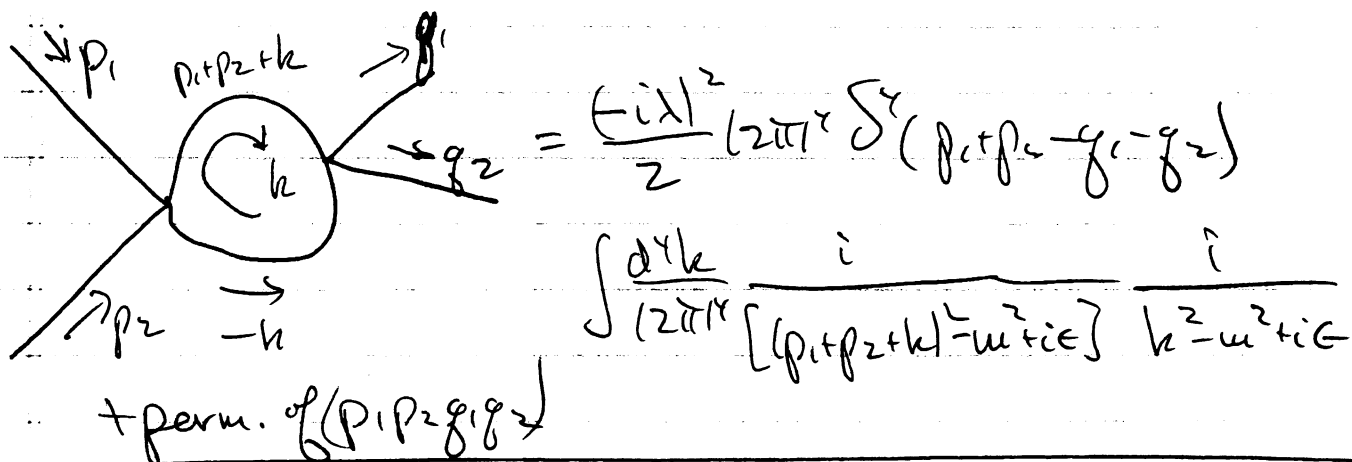 p₁ p₁+p₂+k q₁
k q₂ = (-iλ)²/2 (2π)⁴ δ⁴(p₁+p₂-q₁-q₂)
p₂ -k ∫ d⁴k/(2π)⁴ i/[(p₁+p₂+k)²-m²+iϵ] i/k²-m²+iϵ
+ perm. of (p₁p₂q₁q₂)